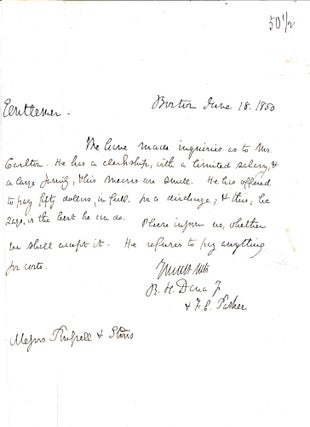 50 1/2
Gentlemen.
Boston June 18. 1850
We have made inquiries as to Mr.
Carlton. He has a clerkship, with a limited salary, &
a large family, & his means are small. He has offered
to pay fifty dollars, in full, for a discharge; & this, he
says, is the best he can do. Please inform us, whether
we shall accept it. He refuses to pay anything
for costs.
R. H. Dana Jr
& F. E. Parker
Messrs Russell &